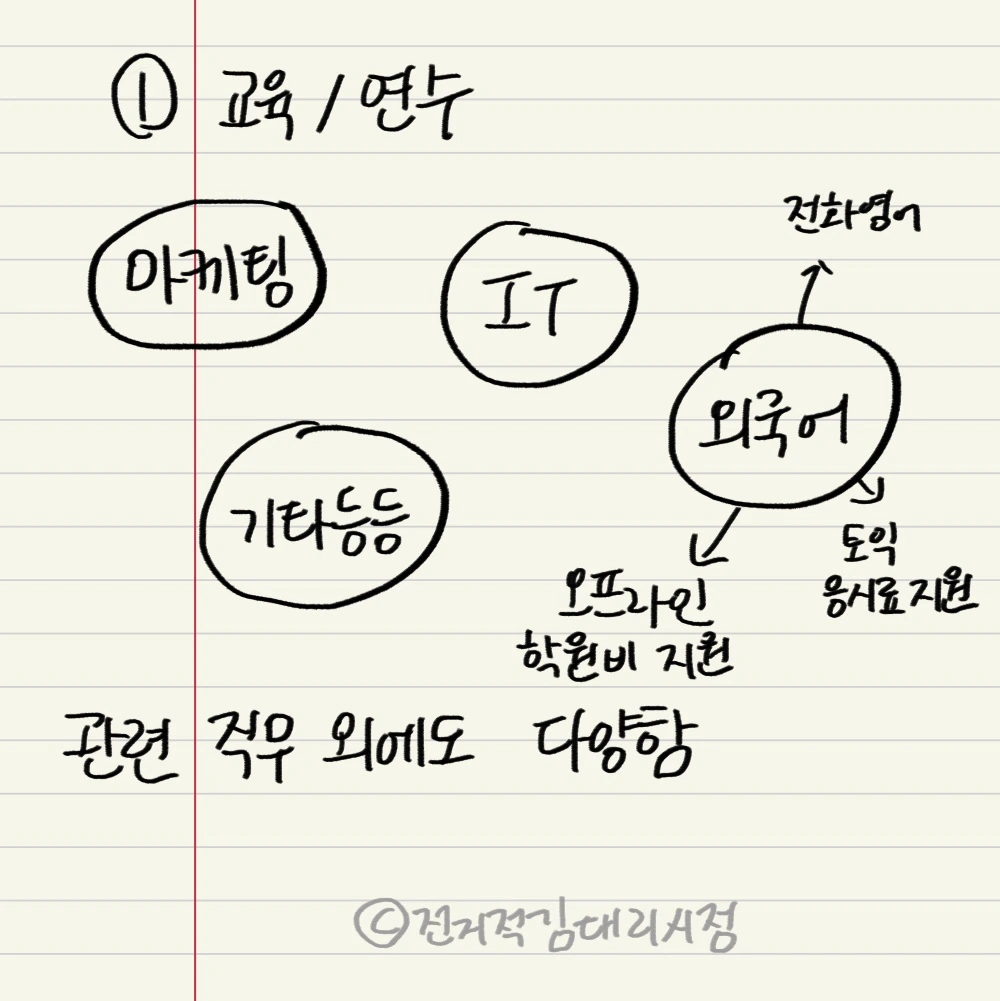 ① 교육 / 연수
마케팅
IT
전화영어
외국어
기타등등
토익
응시료지원
오프라인
학원비 지원
관련 직무 외에도 다양함
©전지적김대리시점